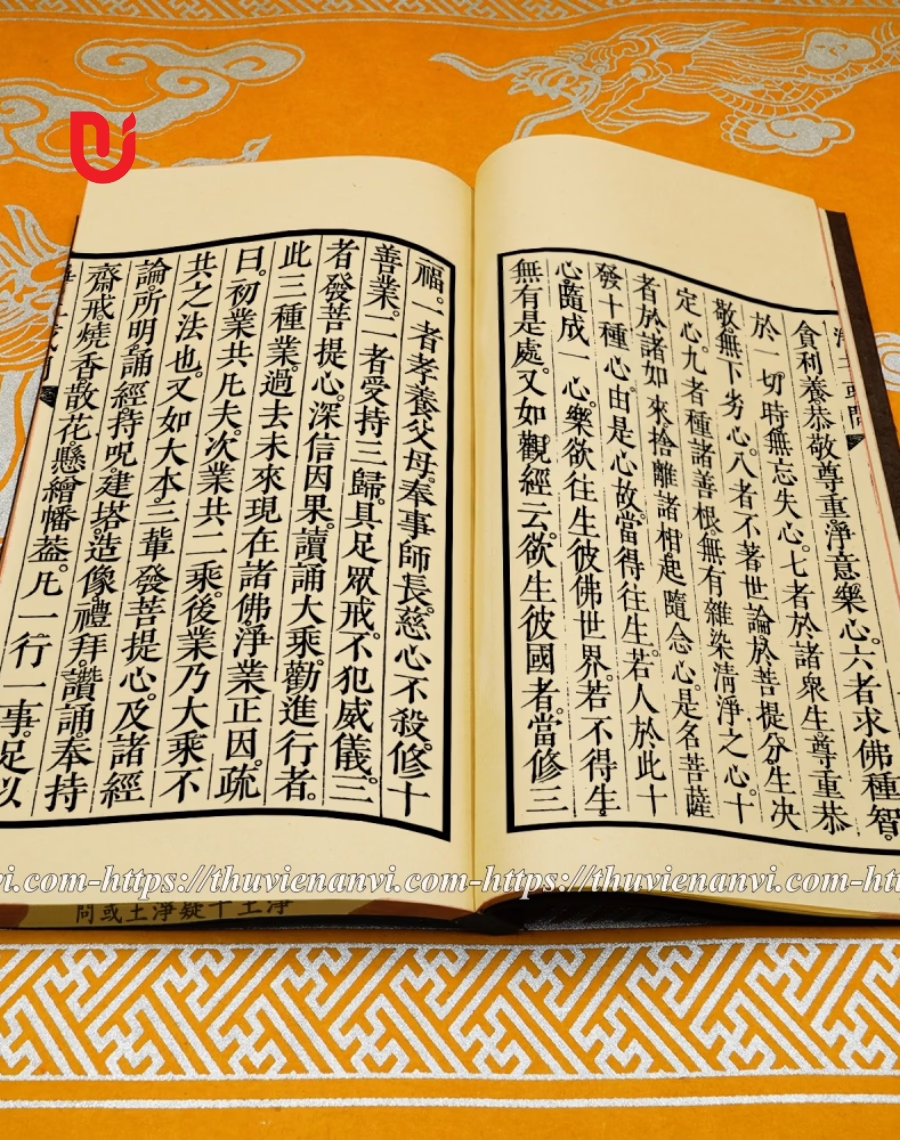 貪利養。恭敬尊重。淨意樂心。六者求佛種智。
於一切時無忘失心。七者於諸衆生。尊重恭
敬。無下劣心。八者不著世論。於菩提分生决
定心。九者種諸善根。無有雜染清淨之心。十
者於諸如來。捨離諸相。起隨念心。是名菩薩
發十種心。由是心故。當得往生。若人於此十
心。隨成一心。樂欲往生彼佛世界。若不得生。
無有是處。又如觀經云。欲生彼國者。當修三
福。一者孝養父母。奉事師長。慈心不殺。修十
善業。二者受持三歸。具足眾戒。不犯威儀。三
者發菩提心。深信因果。讀誦大乘。勸進行者。
此三種業。過去未來現在諸佛。淨業正因。疏
曰。初業共凡夫。次業共二乘。後業乃大乘不
共之法也。又如大本。三輩發菩提心。及諸經
論。所明。誦經。持呪。建塔。造像。禮拜。讚誦。奉持
齋戒。燒香。散花。懸繒幡葢。凡一行一事。足以
淨土十疑淨土或問
vi.com-https://thuvienanvi.com-https://thuvienanvi.com-htt